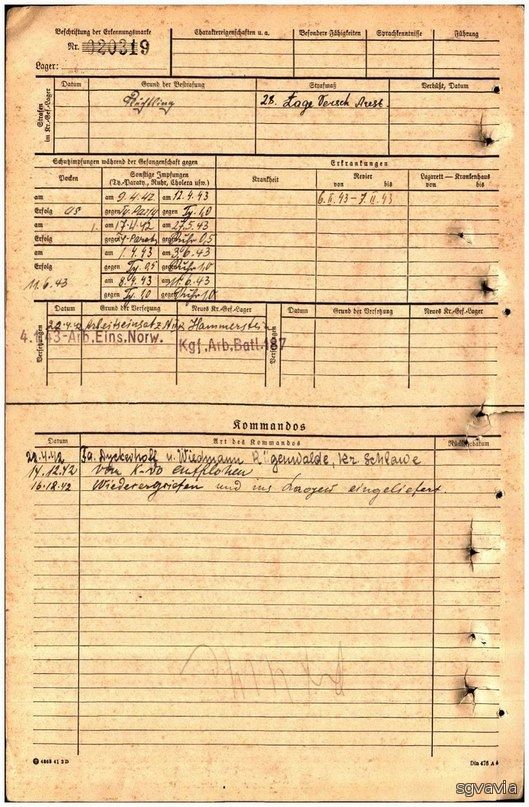 Beschriftung der Erkennungsmarke
Nr. 020319
Lager:
Charaktereigenschaften u. a.
Besondere Fähigkeiten
Sprachkenntnisse
Führung
Strafen im Kr.-Gef.-Lager
Datum
Grund der Bestrafung
Strafmaß
Verbüßt, Datum
Flüchtling
28. Tage Versch Arest
Schutzimpfungen während der Gefangenschaft gegen
Erkrankungen
Pocken
Sonstige Impfungen
(Ty.-Paraty., Ruhr, Cholera usw.)
Krankheit
Revier
von bis
Lazarett — Krankenhaus
von bis
am am 9.4.42 am 12.4.43
6.11.43 - 7.11.43
Erfolg gegen gegen Ty. 1,0
am am am 27.5.43
Erfolg gegen gegen Ruhr 0,5
am am 1.4.43 am 3.6.43
Erfolg gegen Ty. 0,5 gegen Ruhr 1,0
11.6.43 am 8.4.43 am 11.6.43
gegen Ty. 1,0 gegen Ruhr 1,0
Versetzungen
Datum
Grund der Versetzung
Neues Kr.-Gef.-Lager
Versetzungen
Datum
Grund der Versetzung
Neues Kr.-Gef.-Lager
Arbeitseinsatz Hammerstein
Arb.Eins.Norw.
Kgf.Arb.Batl.187
Kommandos
Datum
Art des Kommandos
Rückkehrdatum
Fa. Dyckerhoff u. Wiedmann Rügenwalde, Kr. Schlawe
14.12.42 vom K-do entflohen
16.12.42 Wiederergriffen und ins Lager eingeliefert.
4363 41 2 D
Din 476 A 4
sgvavia